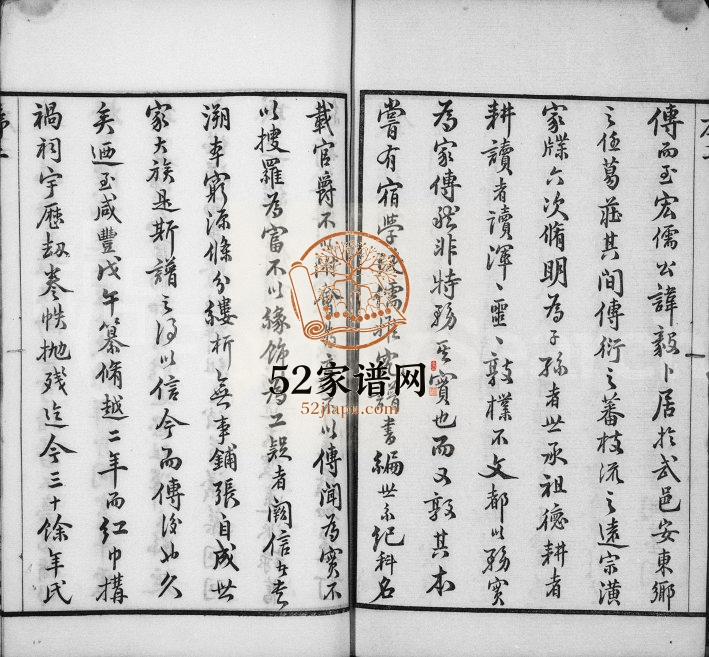 傳而至宏儒公諱毅卜居於武邑安東鄉
之任葛莊其間傳衍之蕃枝流之遠宗潢
家牒六次脩明為子孫者世承祖德耕者
耕讀者讀渾〻噩〻敦樸不文都以務實
為家傳非特務其實也而又敦其本
嘗有宿學儒書編世系紀科名
載官爵不以傳聞為實不
以搜羅為富不以緣飾為工疑者闕信者
溯本窮源條分縷析無事鋪張自成世
家大族是斯譜之得以信今而傳後也久
矣迺至咸豐戊午纂脩越二年而紅巾搆
禍祠宇歷劫卷帙拋殘迄今三十餘年氏
52家谱网
52jiapu.com